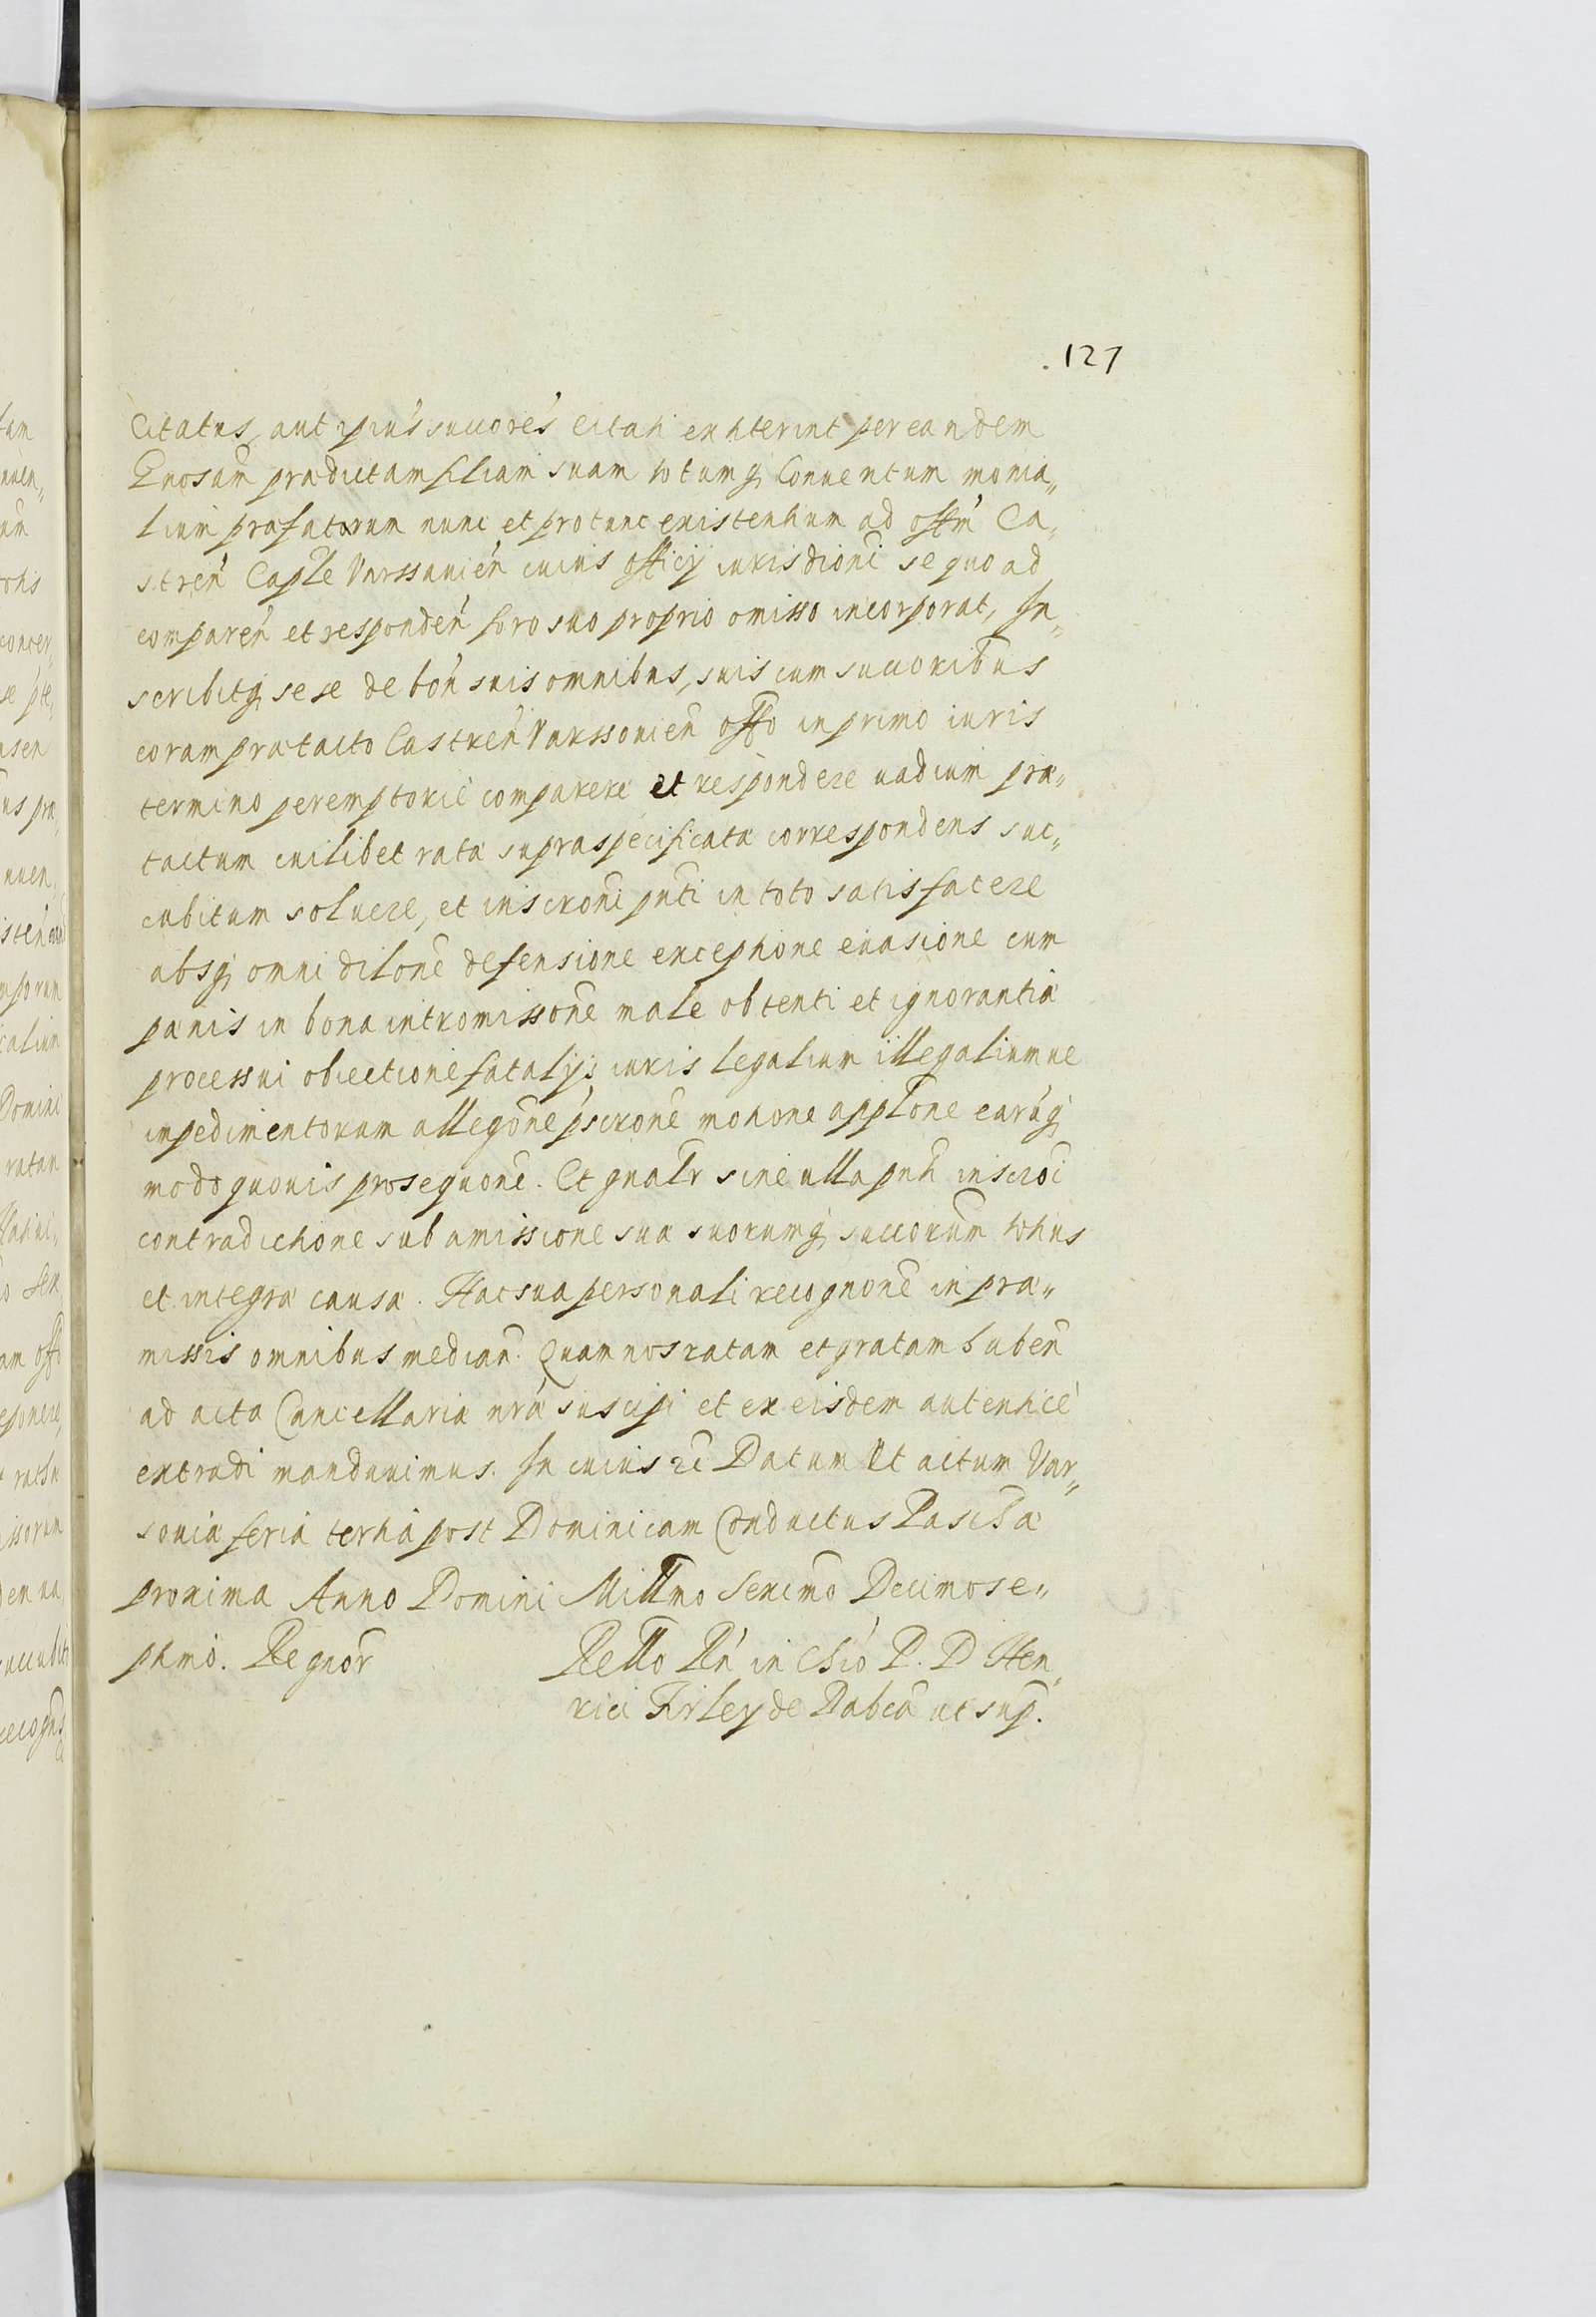 127
Citatus, aut ipius succores citati extiterint per eandem
Gnosam prædictam filiam suam totumq Conuentum monia„
lium præfatorum nunc et pro tunc existentium ad offm Ca„
stren Caple Varssauien cuius officij iurisdioni se quo ad
comparen et responden foro suo proprio omisso incorporat, In„
scribitq sese de bon suis omnibus, suis cum succoribus
coram prætacto Castren Varssouien offo in primo iuris
termino peremptorie comparere et respondere uadium præ„
tactum cuilibet ratæ supraspecificatæ correspondens suc„
cubitum soluere, et inscroni pnti in toto satisfacere
absq omni dilone defensione exceptione euasione cum
pænis in bona intromissone male obtenti et ignorantia
processui obiectione fatalijs iuris legalium illegaliumue
inpedimentorum allegone pscrone motione applone earuq
modo quouis prosequone. Et gnalr sine ulla pnti inscroi
contradictione sub amissione suæ suorumq succorum totius
et integræ causæ. Hac sua personali recognone in præ„
missis omnibus median. Quam nos ratam et gratam haben
ad acta Cancellariæ nræ suscipi et ex eisdem autentice
extradi mandauimus. In cuius rei Datum Et actum Var„
souiæ feria tertia post Dominicam Conductus Paschæ
proxima Anno Domini Millmo Sexcmo Decimose„
ptimo. Regnor Rello Rn in Chio P. D Hen„
rici Firley de Dabca ut sup.